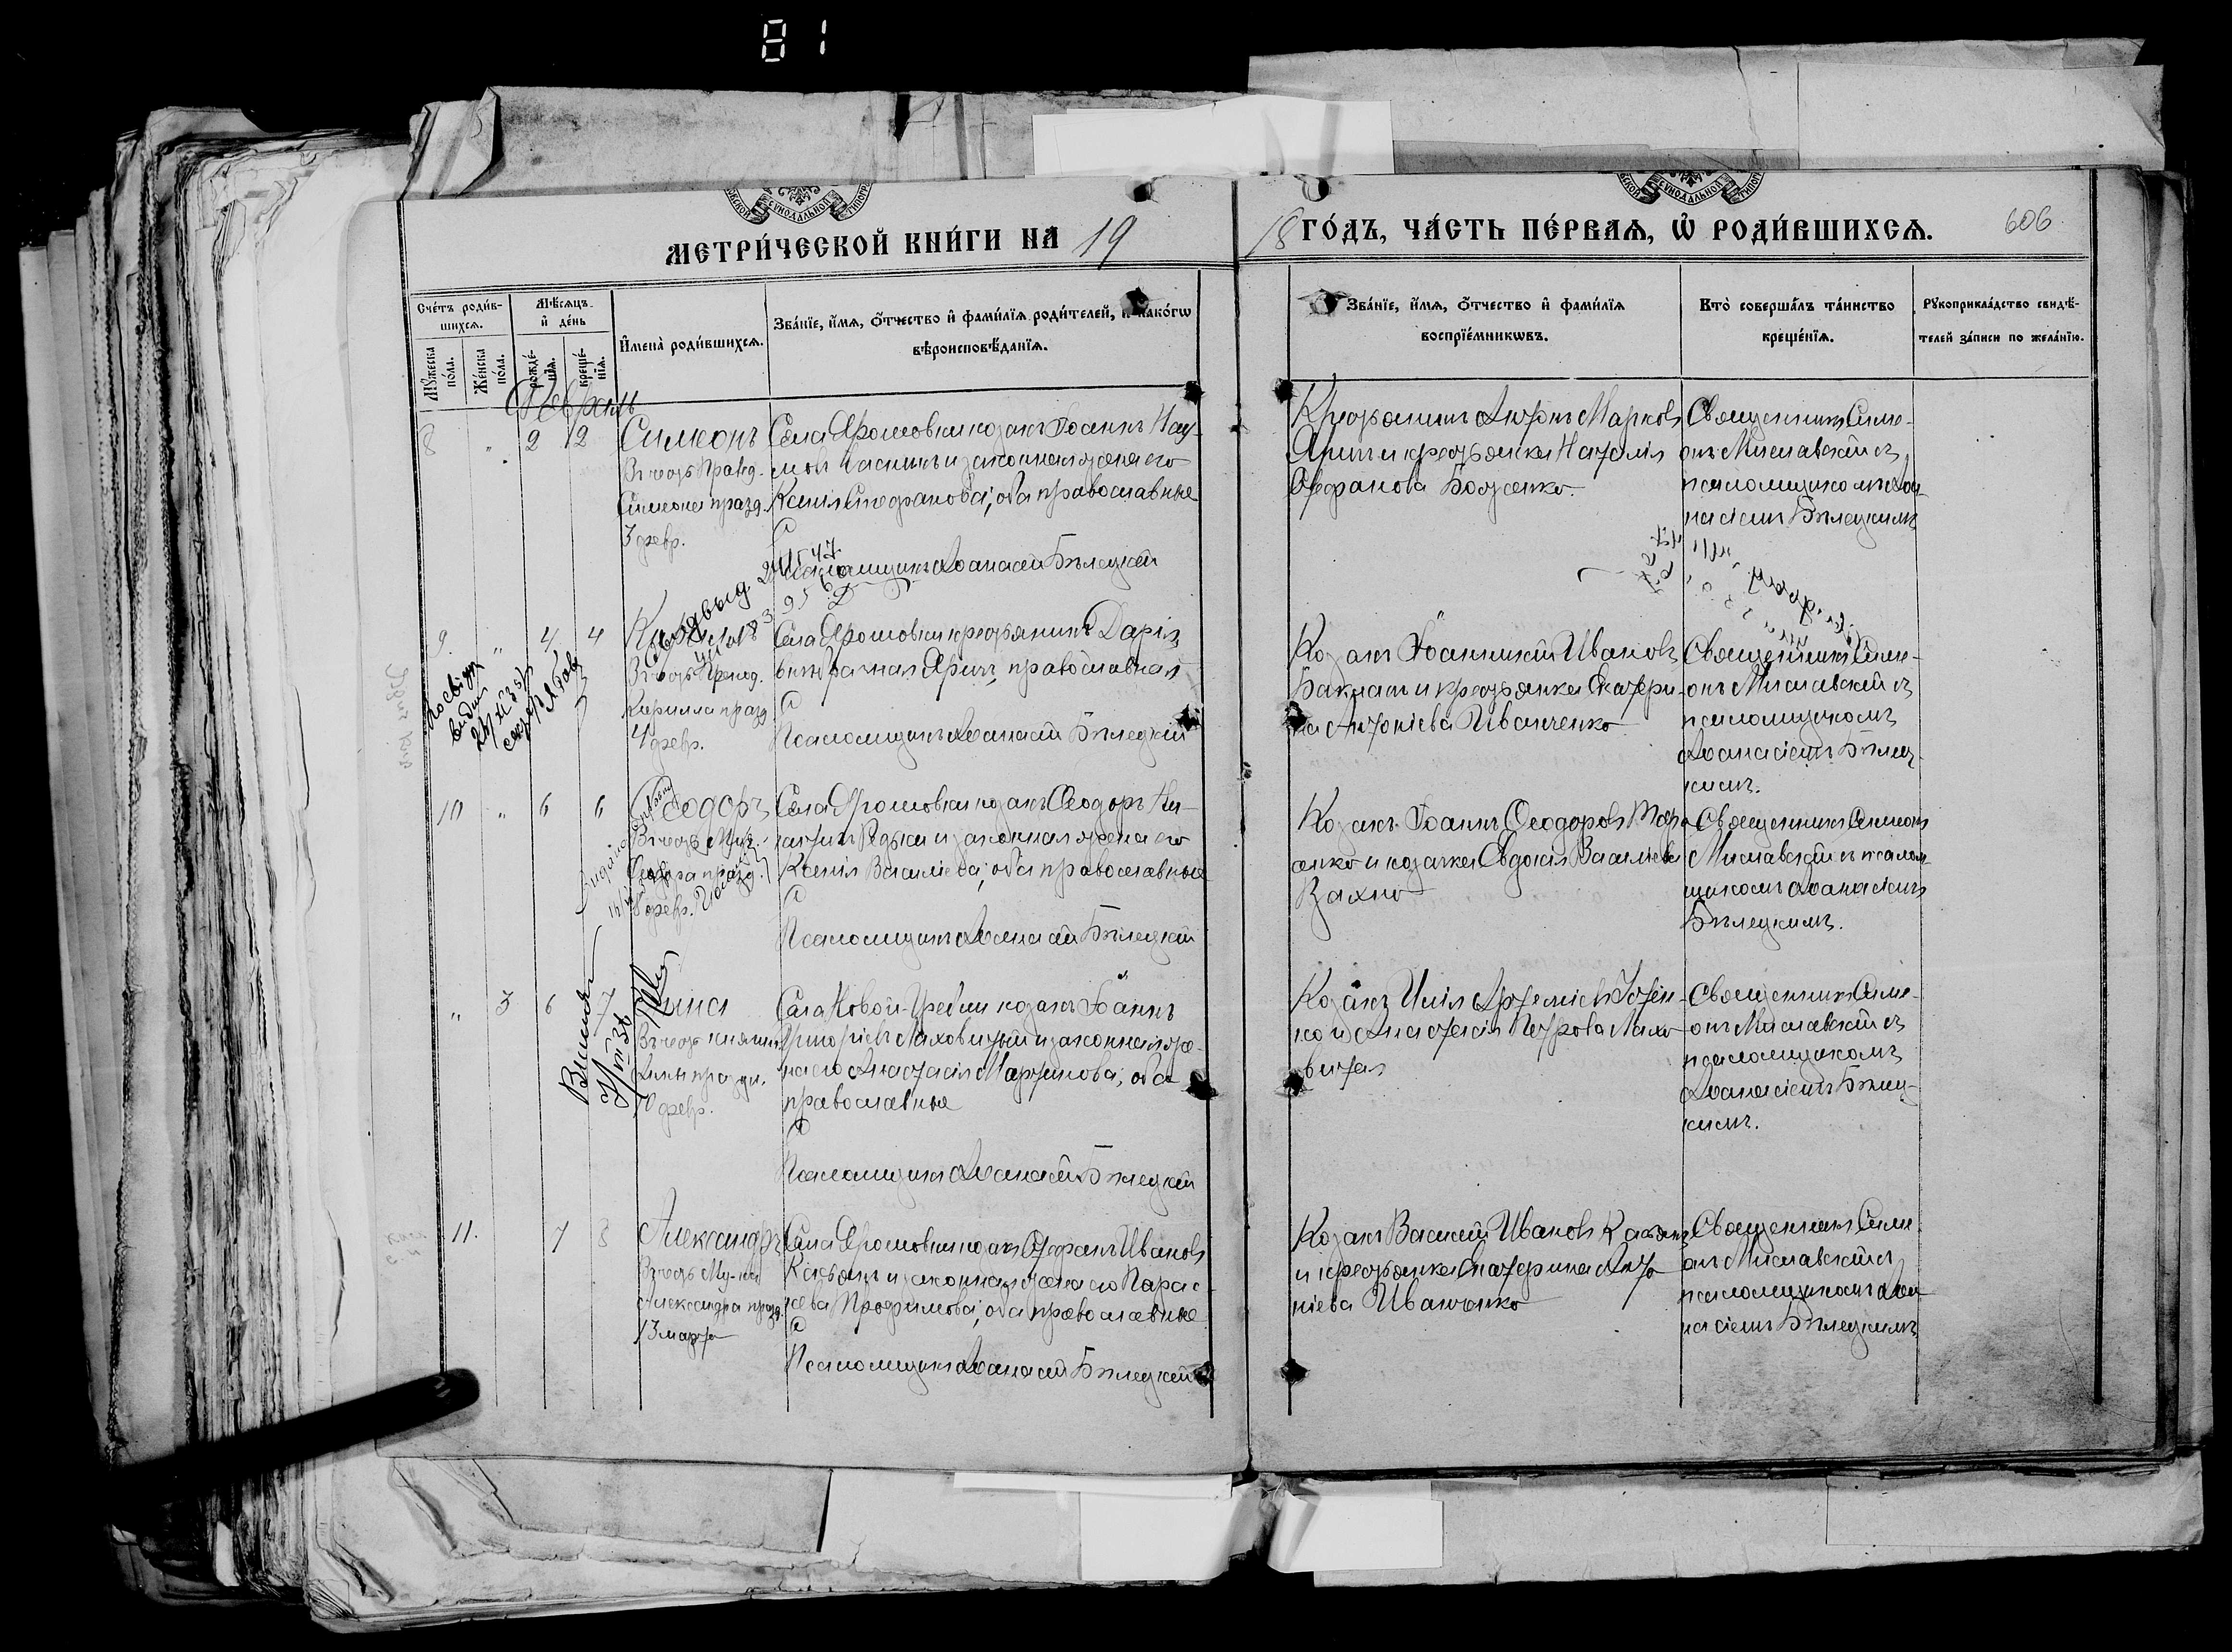 81
МЕТРИ́ЧЕСКОЙ КНИ́ГИ НА 19
18 ГО́ДЪ, ЧА́СТЬ ПЕ́РВАЯ, Ѡ҆ РОДИ́ВШИХСЯ.
606
Сче́тъ роди́в-
шихся.
Мѣ́сяцъ
и҆ де́нь
Му́жеска
по́ла.
Же́нска
по́ла.
рожде́-
нїя.
креще́-
нїя.
И҆мена̀ роди́вшихся.
Зва́нїе, и҆́мя, ѻ҆́тчество и҆ фами́лїя роди́телей, и҆ како́гѡ
вѣроисповѣ́данїя.
Зва́нїе, и҆́мя, ѻ҆́тчество и҆ фами́лїя
воспрїе́мникѡвъ.
Кто̀ соверша́лъ та́инство
креще́нїя.
Рꙋкоприкла́дство свидѣ́-
телей за́писи по жела́нїю.
Февраль
8 " 2 2
Симеонъ
Въ честь Правед.
Симеона празд.
3 февр.
Села Ярошовки козакъ Іоаннъ Нау-
мовъ и законная жена его
Ксенія Стефанова, оба православные
Псаломщикъ Аѳанасій Бѣлецкій
Крестьянинъ Антонъ Марковъ
Яришъ и крестьянка Наталія
Стефанова Боженко.
Священникъ Симе-
онъ Миславскій съ
псаломщикомъ Аѳа-
насіемъ Бѣлецкимъ
9. " 4 4
Кириллъ
Въ честь Препод.
Кирилла празд.
4 февр.
Села Ярошовки крестьянинъ Дарія
внѣбрачная Яришъ, православная
Псаломщикъ Аѳанасій Бѣлецкій
Козакъ Іоанникій Ивановъ
Бакланъ и крестьянка Екатери-
на Антоніева Иванченко
Священникъ Симе-
онъ Миславскій съ
псаломщикомъ
Аѳанасіемъ Бѣлец-
кимъ.
10 " 6 6
Ѳеодоръ
Въ честь Муч.
Ѳеодора празд.
8 февр.
Села Ярошовки козакъ Ѳеодоръ Ни-
китинъ Редька и законная жена его
Ксенія Василіева, оба православные
Псаломщикъ Аѳанасій Бѣлецкій
Козакъ Іоаннъ Ѳеодоровъ
енко и козачка Евдокія Василіева
Вахно
Священникъ Симеонъ
Миславскій съ псалом-
щикомъ Аѳанасіемъ
Бѣлецкимъ.
" 3 6 7
Анна
Въ честь княгини
Анны праздн.
10 февр.
Села Новой-Гребли козакъ Іоаннъ
Григоріевъ Маховитый и законная же-
на его Анастасія Мартинова, оба
православные
Псаломщикъ Аѳанасій Бѣлецкій
Козакъ Илія Артеміевъ
ко и Анастасія Петрова Махо-
витая
Священникъ Симе-
онъ Миславскій съ
псаломщикомъ
Аѳанасіемъ Бѣлец-
кимъ.
11. 7 8
Александръ
Въ честь Му-ка
Александра празд.
13 марта
Села Ярошовки козакъ Стефанъ Ивановъ
Касьянъ и законная жена его Парас-
кева Трофимова, оба православные
Псаломщикъ Аѳанасій Бѣлецкій
Козакъ Василій Ивановъ Касьянъ
и крестьянка Екатерина Анто-
ніева Иванченко
Священникъ Симе-
онъ Миславскій съ
псаломщикомъ Аѳа-
насіемъ Бѣлецкимъ